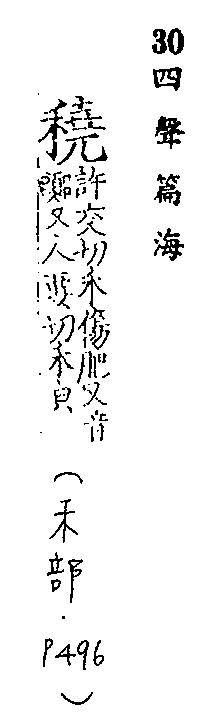 30四聲篇海
穘許交切禾傷肥又音
又人切禾皃
(禾部.P496)